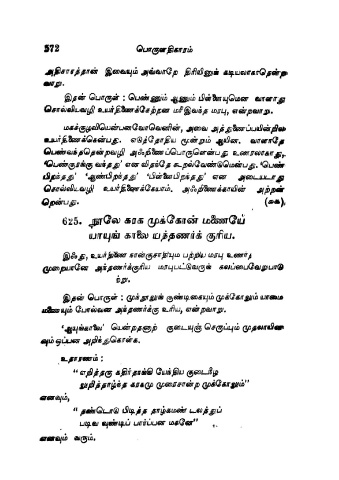 572 பொருளதிகாரம்
அதிகாரத்தான் இவையும் அவ்வாறே திரியினுங் கடியலாகாதென்ற
வாறு.
இதன் பொருள் : பெண்ணும் ஆணும் பிள்ளையுமென வாளாது
சொல்லியவழி உயர்திணைக்சேற்றன மரீஇவந்த மரபு, என்றவாறு.
மகக்குழவியென்பனவோவெனின், அவை அத்துணைப்பயின்றில
உயர்திணைக்கென்பது. எடுத்தோதிய மூன்றும் ஆயின. வாளாதே
பெண்வந்ததென்றவழி அஃறிணைப்பொருளென்பது உணரலாகாது,
'பெண்குரங்கு வந்தது' என விதந்தே கூறல்வேண்டுமென்பது. 'பெண்
பிறந்தது' 'ஆண்பிறந்தது' 'பிள்ளைபிறந்தது' என அடையடாது
சொல்லியவழி உயர்திணைக்கேயாம். அஃறிணைக்காயின் அற்றன்
றென்பது.
625. நூலே கரக முக்கோன் மணையே
யாயுங் காலை யந்தணர்க் குரிய.
இஃது, உயர்திணை நான்குசாதியும் பற்றிய மரபு உணர்
முறையானே அந்தணர்க்குரிய மரபுபட்டுவருங் கலப்பைவேறுபாடு
ற்று.
இதன் பொருள் : முந்நூலுங் குண்டிகையும் முக்கோலும் யாமை
மணையும் போல்வன அந்தணர்க்கு உரிய, என்றவாறு.
'ஆயுங்காலை' யென்றதனாற் குடையுஞ் செருப்பும் முதலாயின
வும் ஒப்பன அறிந்துகொள்க.
உதாரணம் :
"எறித்தரு கதிர்தாங்கி யேந்திய குடைநீழ
லுறித்தாழ்ந்த கரகமு முரைசான்ற முக்கோலும்"
எனவும்,
"தண்டொடு பிடித்த தாழ்கமண் டலத்துப்
படிவ வுண்டிப் பார்ப்பன மகனே"
எனவும் வரும்.